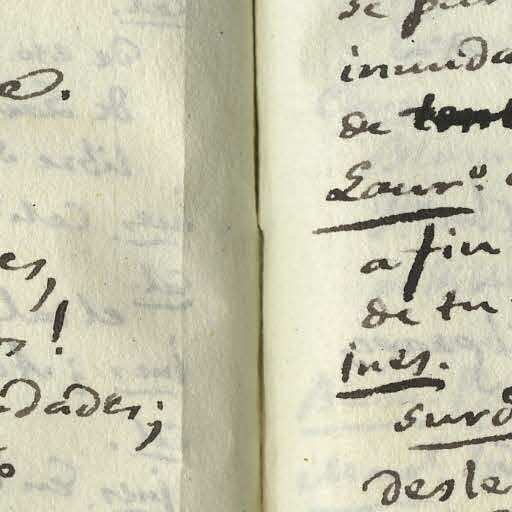 es,
s!
dades;
inunda
de
Laurº.
a fin
de tu
ines.
surd
desle